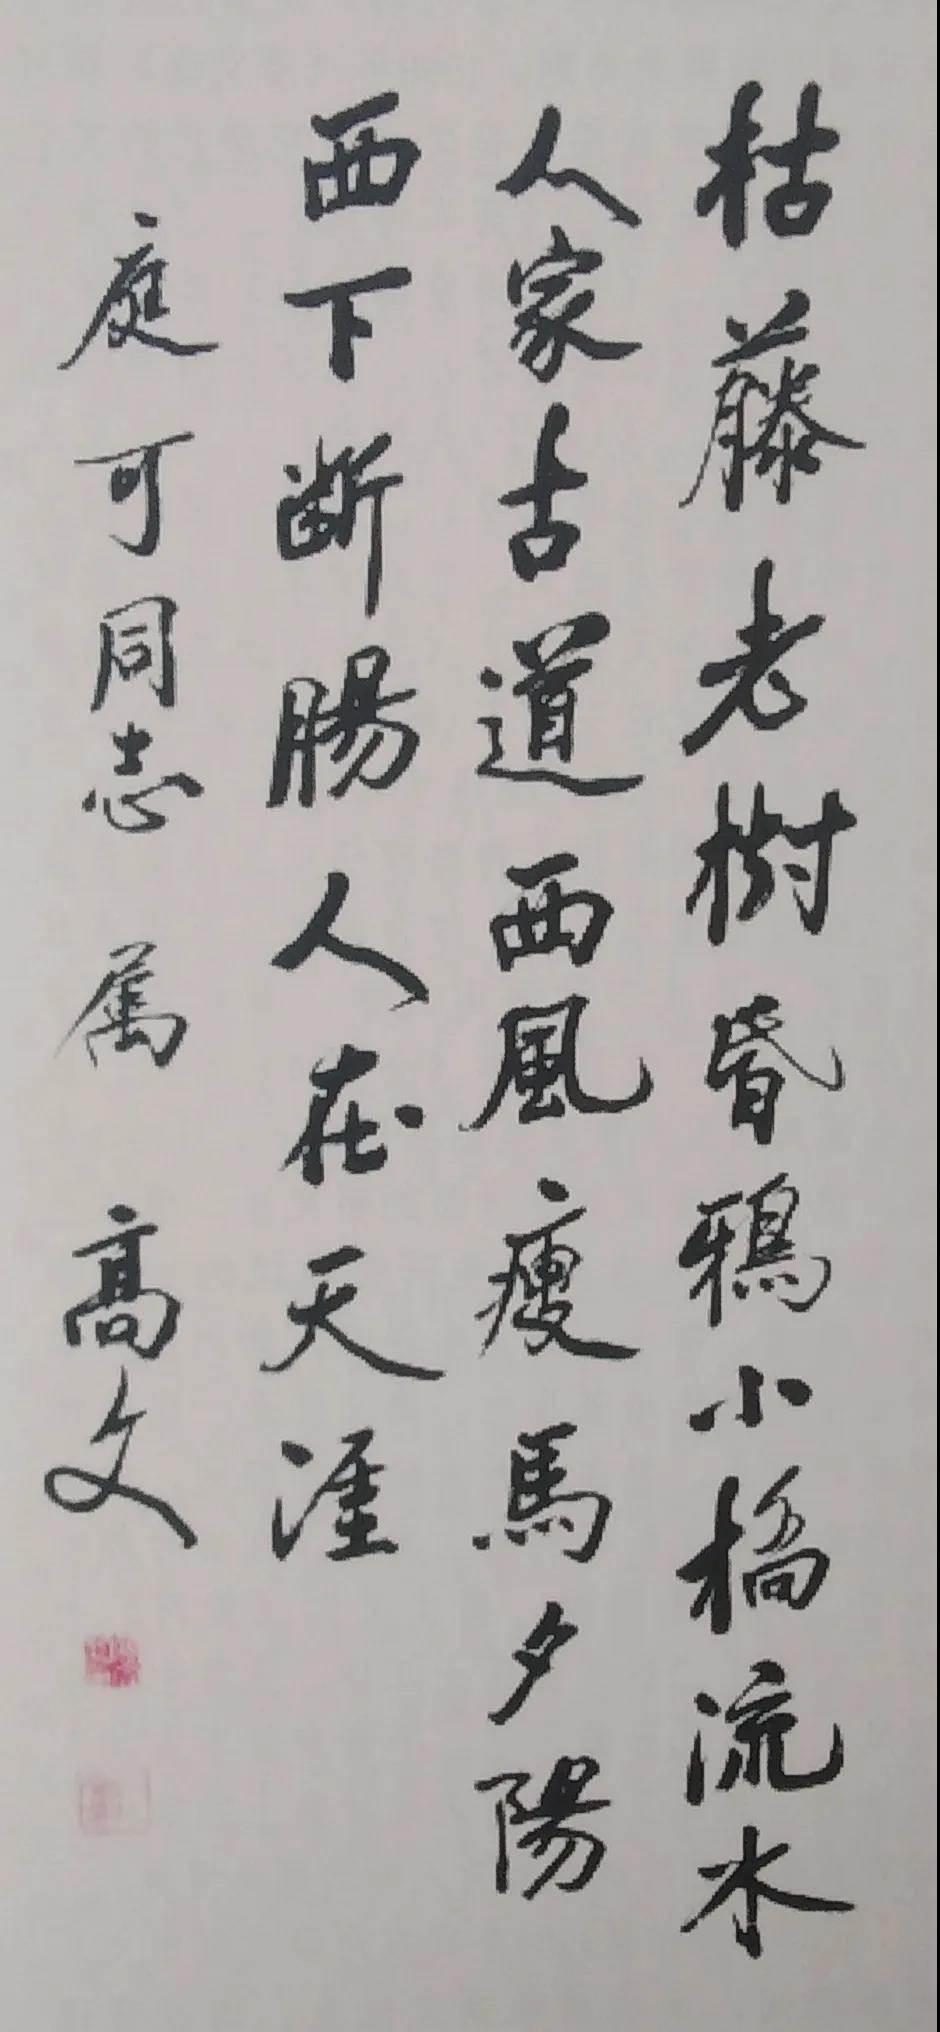 枯藤老樹昏鴉小橋流水
人家古道西風瘦馬夕陽
西下断腸人在天涯
庭可同志属 高文